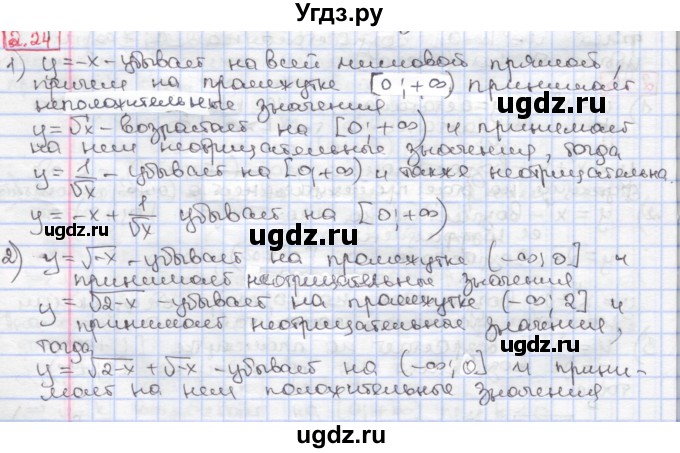 Угдз.ру
2.24
1) y=-x - убывает на всей числовой прямой,
причем на промежутке [0;+∞) принимает
неположительные значения
y=√x - возрастает на [0;+∞) и принимает
на нем неотрицательные значения, тогда
y=1/√x - убывает на [0;+∞) и также неотрицательна.
y=-x+1/√x убывает на [0;+∞)
2) y=√-x - убывает на промежутке (-∞;0] и
принимает неотрицательные значения
y=√2-x - убывает на промежутке (-∞;2] и
принимает неотрицательные значения,
тогда
y=√2-x+√-x - убывает на (-∞;0] и прини-
мает на нем положительные значения
ugdz.ru
ugdz.ru
ugdz.ru
ugdz.ru
ugdz.ru
Угдз.ру